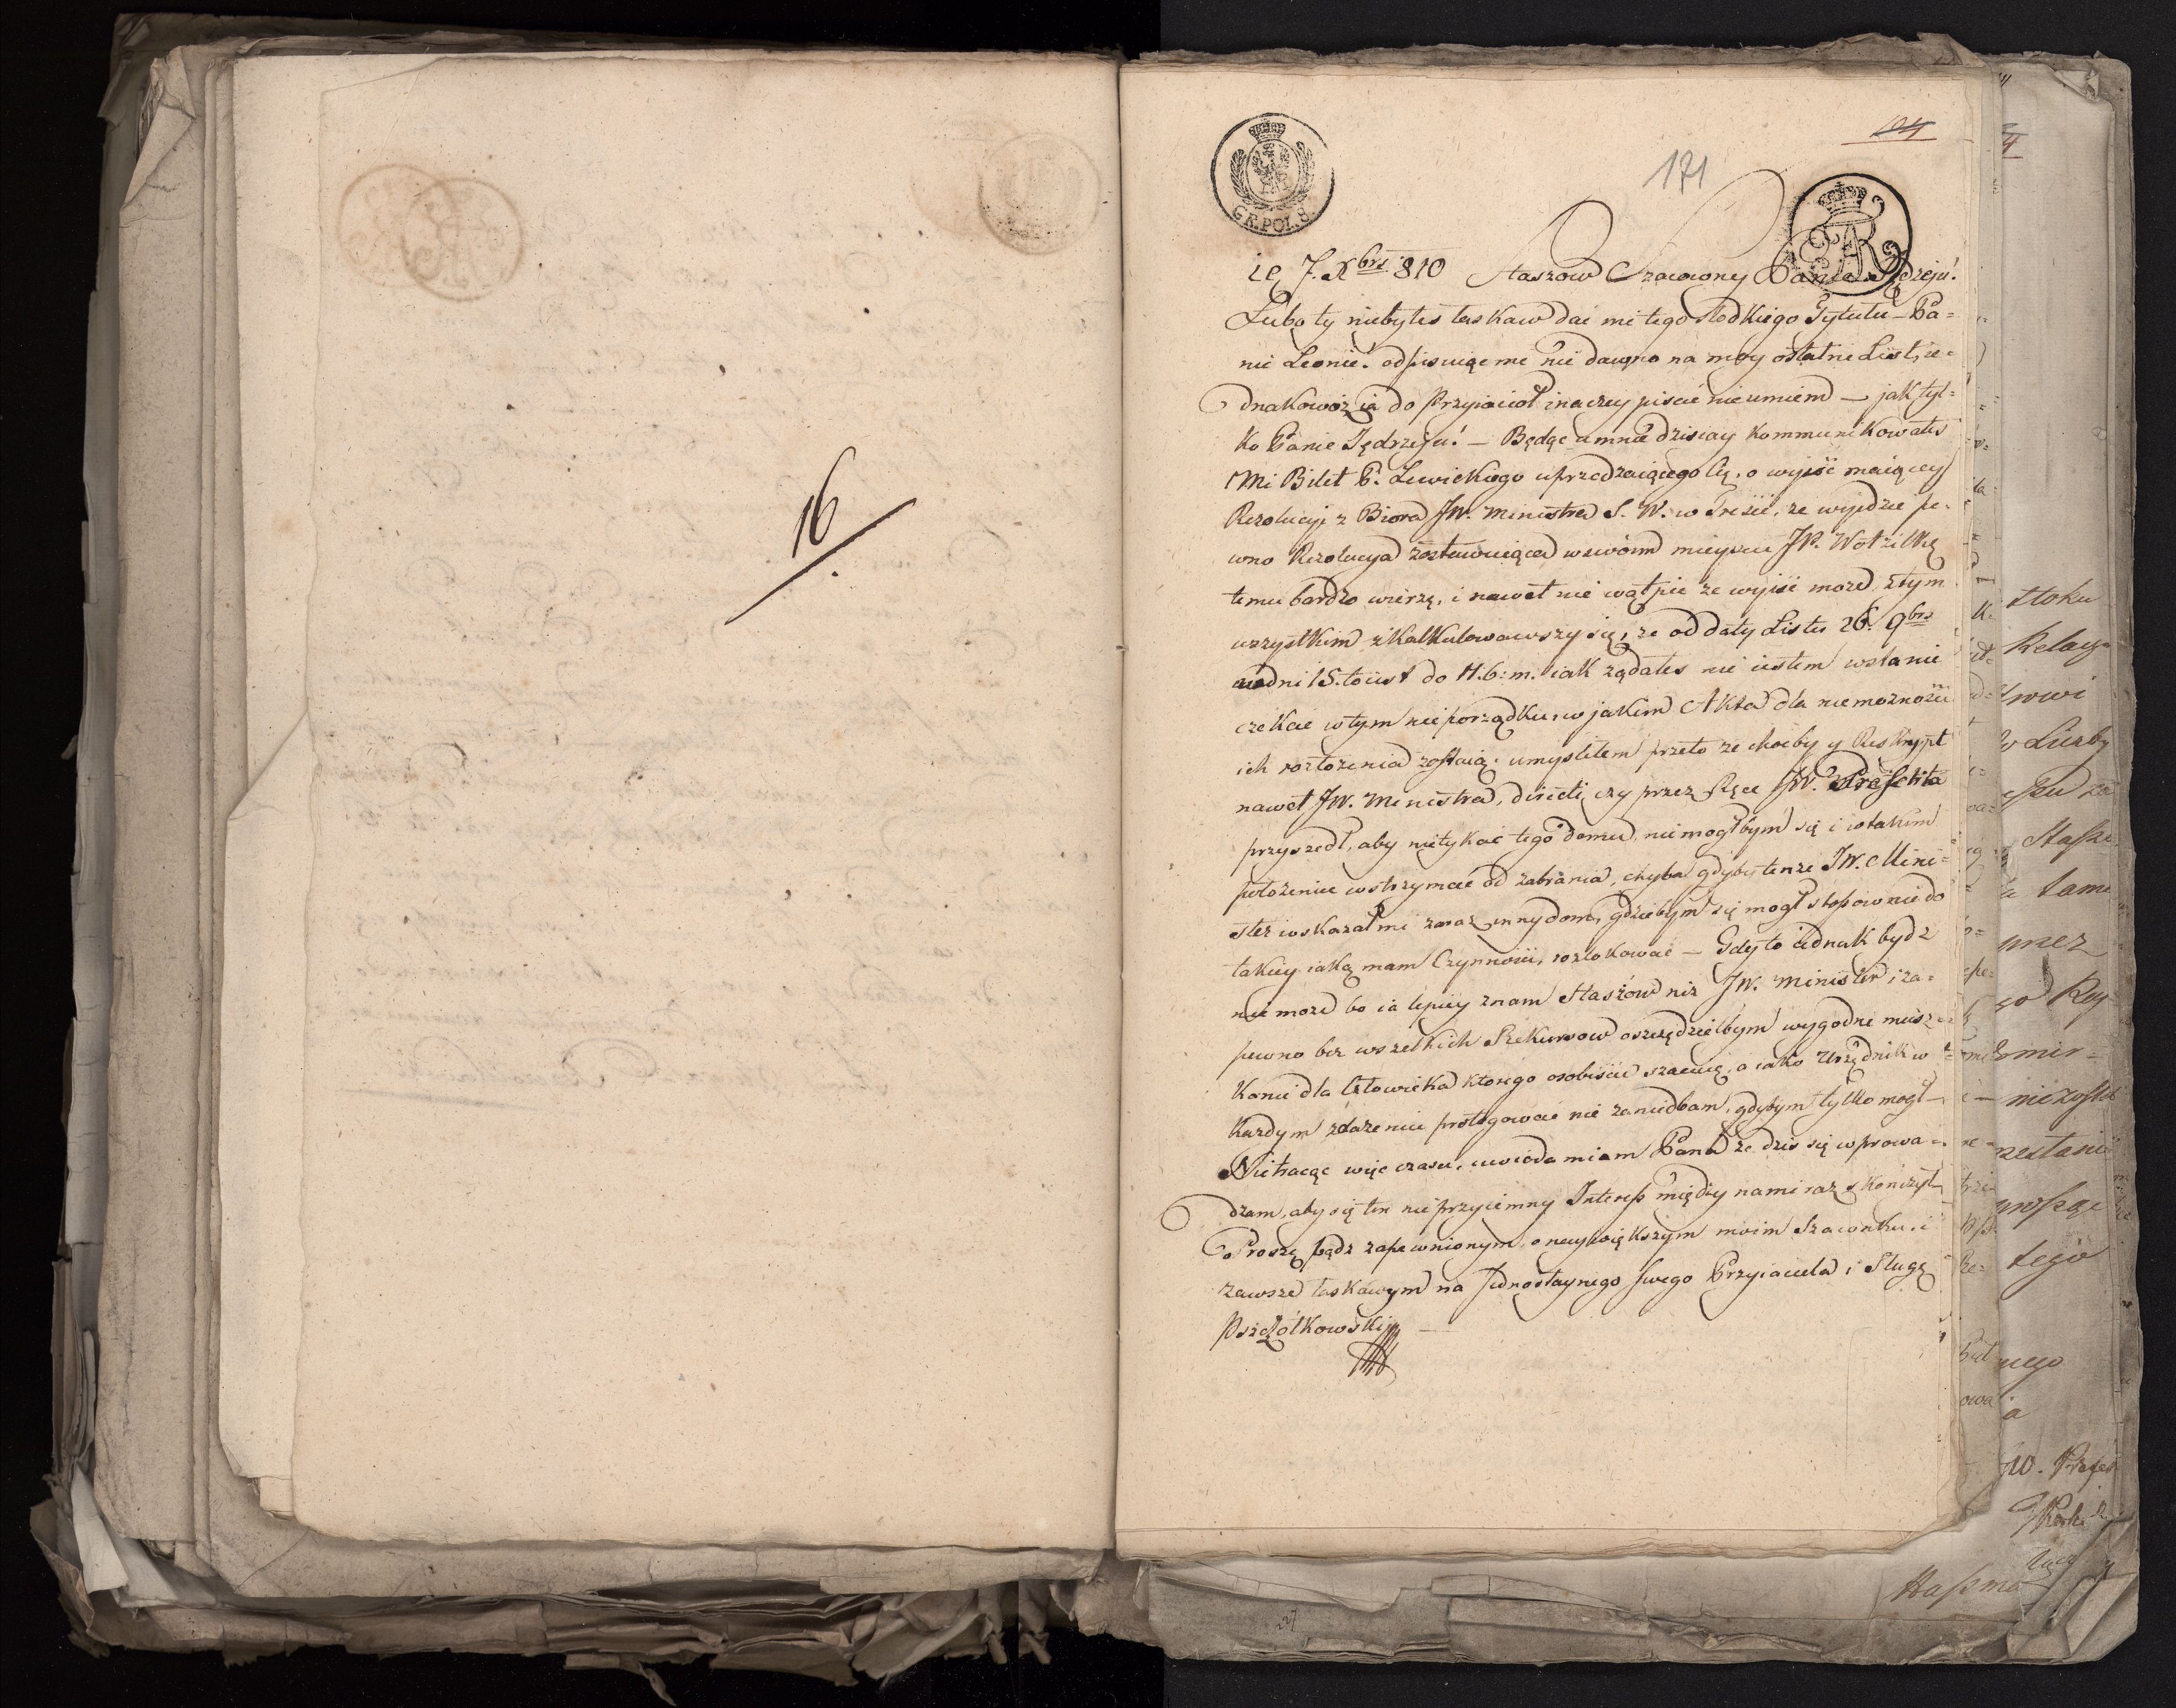 16
GR. POL. 8.
104
171
FAR
ie 7. Xbris 810 Staszow Szanowny Panie Jędrzeju!
Lubo ty niebyłes łaskaw dać mi tego słodkiego Tytułu – Pa=
nie Leonie! odpisuiąc mi nie dawno na moy ostatni List, ie=
dnakowoż ia do Przyiacioł inaczey pisać nieumiem – jak tyl=
ko Panie Jędrzeju! – Będąc u mnie dzisiay kommunikowałeś
Mi Bilet P. Lewickiego uprzedzaiącego Cię, o wyiść maiącey
Rezolucyi z Biora JW. Ministra S. W. w Treści, że wyjdzie pe=
wno Rezolucya zostawuiąca w swoim mieyscu JP. Wotzilkę
temu bardzo wierzę, i nawet nie wątpię że wyiść może, z tym
wszystkim zkalkulowawszy się, że od daty Listu 26. 9bris
dni 15. to iest do 11. b: m. iak żądałeś nie iestem wstanie
czekać w tym nieporządku, w jakim Akta dla niemożności
ich rozłożenia zostaią. umysliłem przeto że choćby y Reskrypt
nawet JW. Ministra, directe czy przez Ręce JW. Prefekta
przyszedł, aby nietykać tego domu, nie mogłbym się i w takim
położeniu wstrzymać od zabrania, chyba gdyby tenże JW. Mini=
ster wskazał mi zaraz inny dom, gdziebym się mogł stosownie do
takiey iaką mam Czynności, rozlokować – Gdy to iednak bydź
nie może bo ia lepiey znam Staszów niż JW. Minister i za=
pewno bez wszelkich Rekursow oszczędziłbym wygodne miesz=
kanie dla Człowieka ktorego osobiście szacuię, a iako Urzędnik w
każdym zdarzeniu protegować nie zaniedbam, gdybym tylko mogł –
Nietracąc więc czasu, uwiadamiam Pana że dziś się wprowa=
dzam, aby się ten nieprzyiemny Interess między nami raz skończył
Proszę bądź zapewnionym, o naywiększym moim Szacunku, i
zawsze łaskawym na Jednostaynego swego Przyiaciela i Sługę
Pszczółkowski
tłoku
Relacy=
Liczby
tam
przez
niezosta
tego
JW. Prefek
27